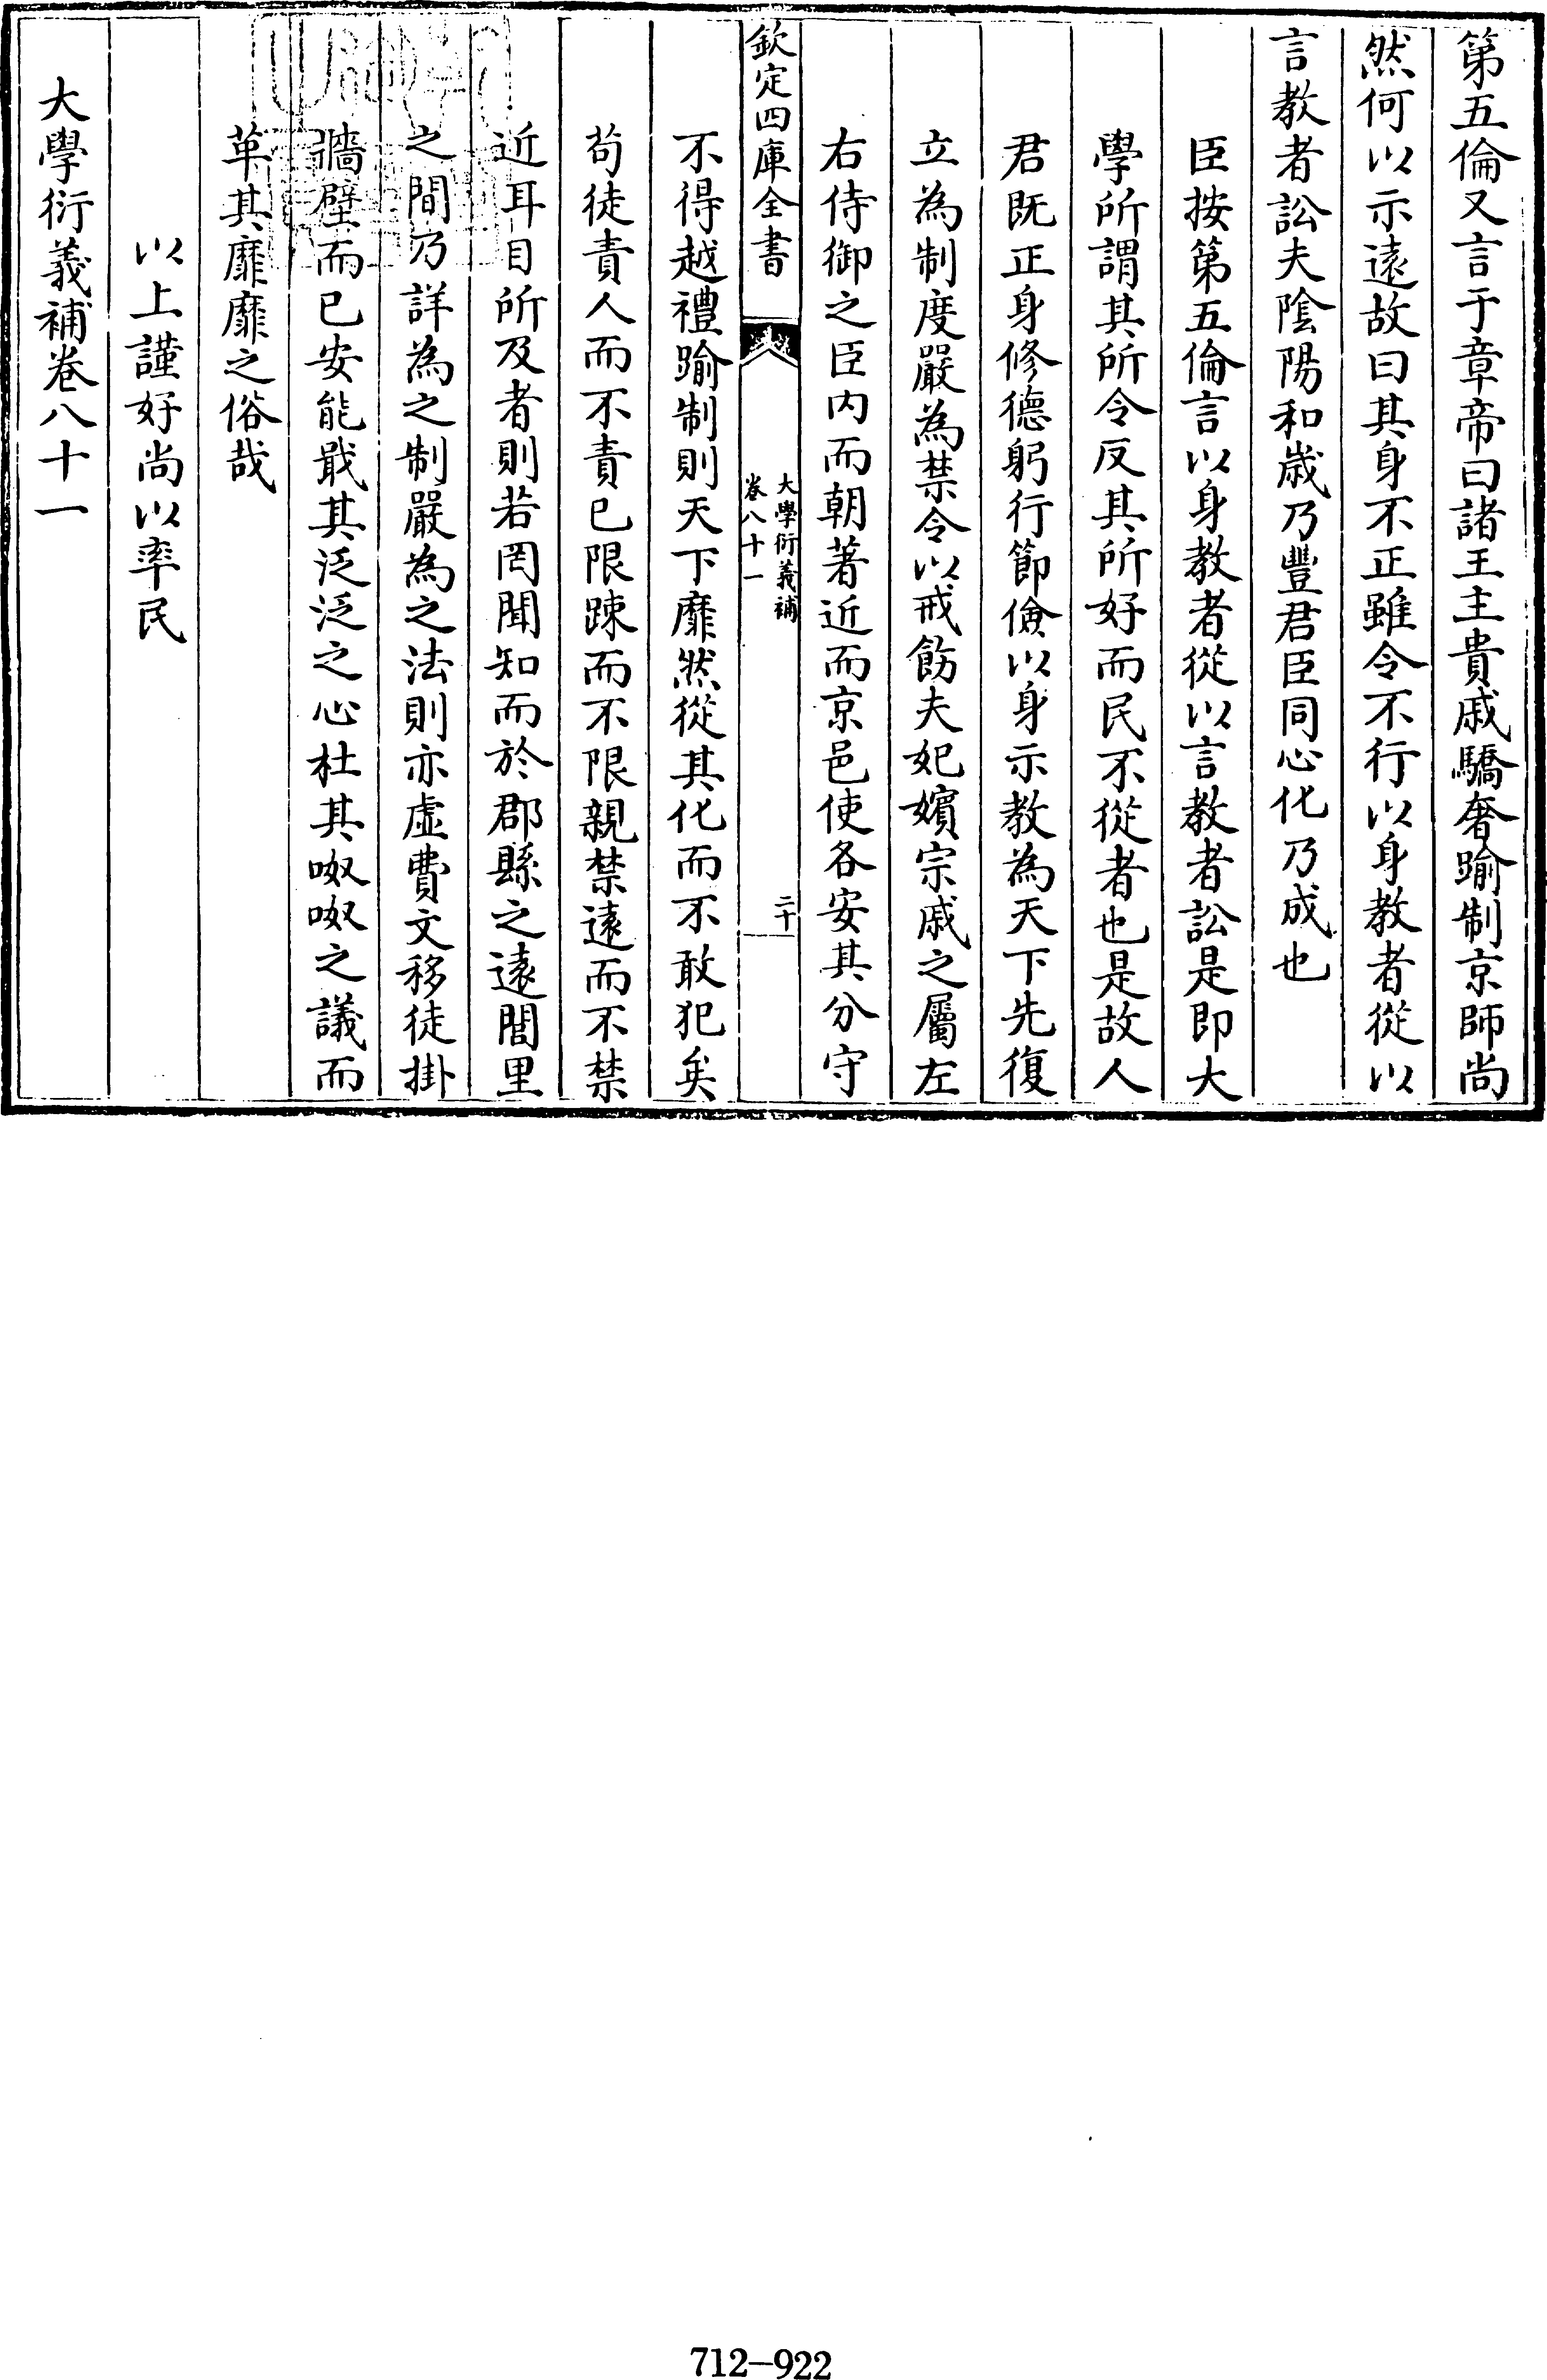 第五倫又言于章帝曰諸王主貴戚驕奢踰制京師尚
然何以示遠故曰其身不正雖令不行以身教者從以
言教者訟夫陰陽和歳乃豐君臣同心化乃成也
臣按第五倫言以身教者從以言教者訟是即大
學所謂其所令反其所好而民不從者也是故人
君既正身修德躬行節儉以身示教為天下先復
立為制度嚴為禁令以戒飭夫妃嬪宗戚之屬左
右侍御之臣内而朝著近而京邑使各安其分守
欽定四庫全書
大學衍義補
卷八十一
二十
不得越禮踰制則天下靡然從其化而不敢犯矣
茍徒責人而不責已限踈而不限親禁遠而不禁
近耳目所及者則若罔聞知而於郡縣之遠閭里
之間乃詳為之制嚴為之法則亦虚費文移徒掛
牆壁而已安能戢其泛泛之心杜其呶呶之議而
革其靡靡之俗哉
以上謹好尚以率民
大學衍義補卷八十一
712-922